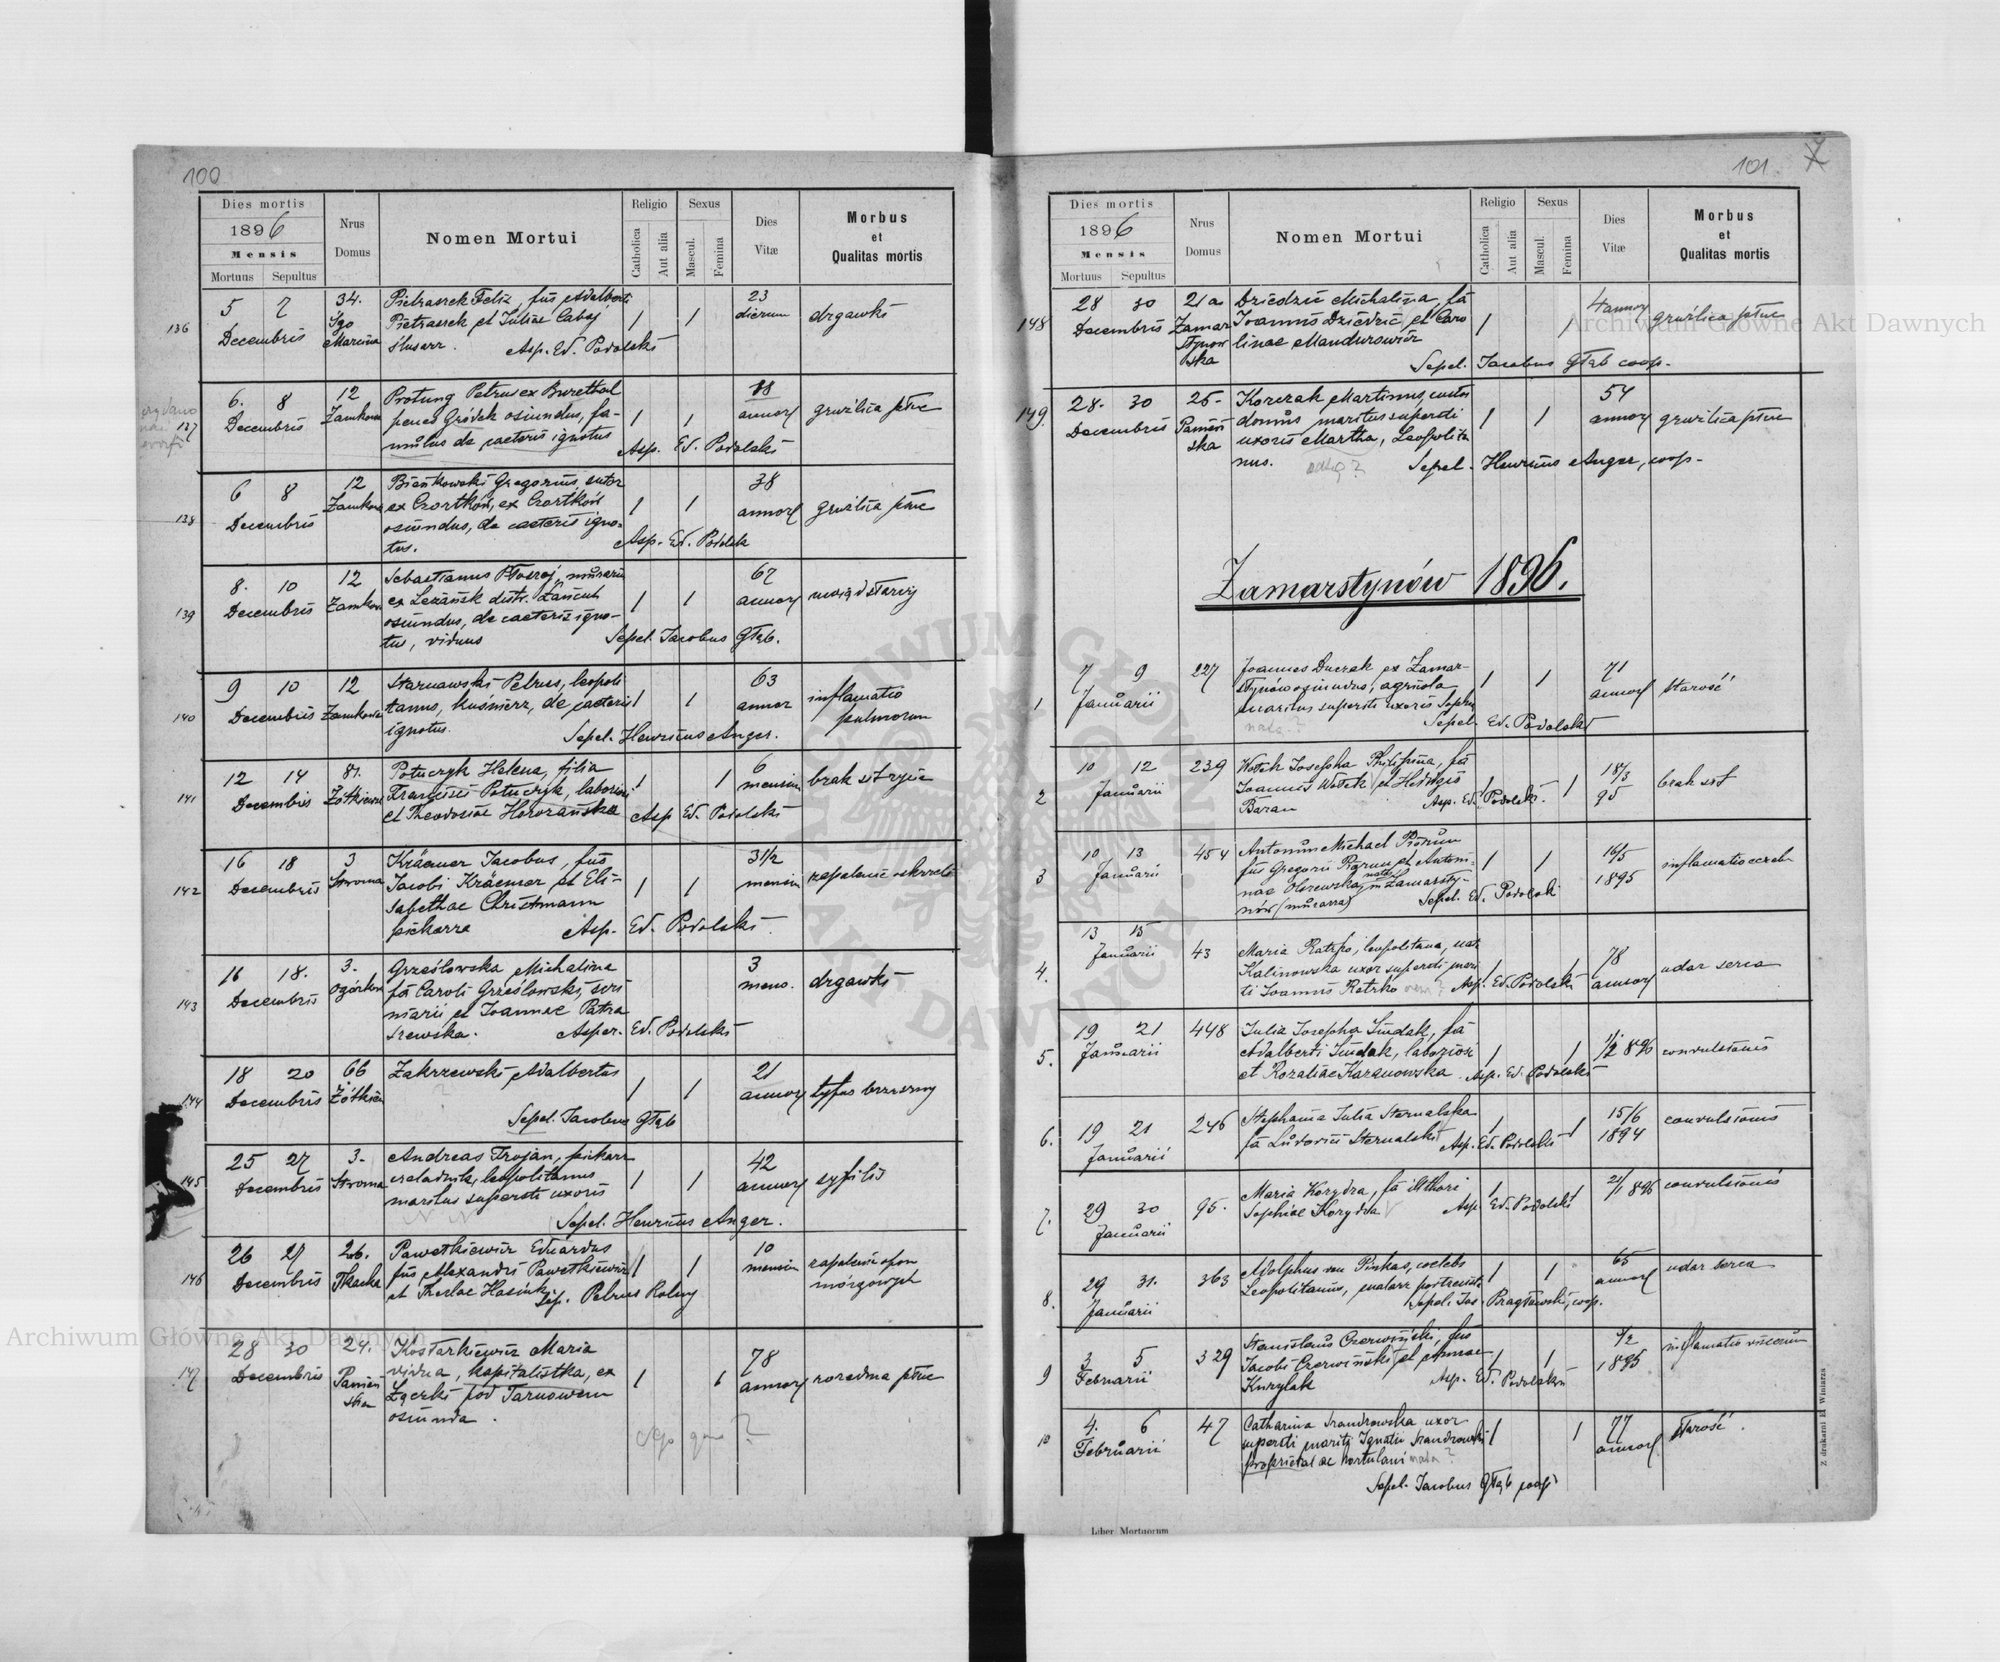 100
Dies mortis
1896
Mensis
Mortuus Sepultus
Nrus Domus
Nomen Mortui
Religio
Catholica Aut alia
Sexus
Mascul. Femina
Dies Vitæ
Morbus et Qualitas mortis
136
5 7 34. Pietraszek Feliz, fius Adalberti 23
Decembris Sgo Pietraszek et Iuliae Cabaj 1 1 dierum drgawki
Marcina ślusarz. Asp. Ed. Podolski
137
6. 8 12 Protung Petrus ex Burethal 18
Decembris Zamkowa penes Gródek osiundus, fa- 1 1 annor gruźlica płuc
mulus de caeteris ignotus
Asp. Ed. Podolski
138
6 8 12 Bieńkowski Gregorius, sutor 38
Decembris Zamkowa ex Czortków, ex Czortków 1 1 annor gruźlica płuc
osiundus, de caeteris igno-
tus. Asp. Ed. Podolski
139
8. 10 12 Sebastianus murariu 67
Decembris Zamkowa ex Leżańsk distr. Łańcut 1 1 annor uwiąd starczy
osiundus, de caeteris igno-
tus, viduus Sepel. Jacobus Głąb.
140
9 10 12 Starnawski Petrus, leopoli 63
Decembris Zamkowa tanus, kuśnierz, de caeteris 1 1 annor inflamatio
ignotus. pulmorum
Sepel. Henricus Anger.
141
12 14 81. Potuczyk Helena, filia 6
Decembris Żółkiewska Francisci Potuczyk, laboriosi 1 1 mensium brak sit życia
et Theodosiae Horożańska Asp Ed. Podolski
142
16 18 3 Kräemer Jacobus, fius 3 1/2
Decembris Stroma Jacobi Kräemer et Eli- 1 1 mensium zapalenie oskrzeli
sabethae Christmann
piekarza Asp. Ed. Podolski.
143
16 18. 3. Grześlowska Michalina 3
Decembris Ogórkowa fa Caroli Grześlowski, seri mens. drgawki
niarii et Joannae Patra
szewska. Asper. Ed. Podolski
144
18 20 66 Zakrzewski Adalbertus 21
Decembris Żółkiew 1 1 annor tyfus brzuszny
Sepel. Jacobus Głąb
145
25 27 3. Andreas Trojan, piekarz 42
Decembris Stroma czeladnik, leopolitanus 1 1 annor syfilis
maritus superstis uxoris
Sepel. Henricus Anger.
146
26 27 26. Pawetkiewicz Eduardus 10
Decembris Tkacka fius Alexandri Pawetkiewicz 1 1 mensium zapalenie opon
et Theclae Hasiuk mózgowych
Sep. Petrus Kolny
147
28 30 24. Kostarkiewicz Maria 78
Decembris Panień vidua, kapitalistka, ex 1 1 annor rozedma płuc
ska Łączki pod Tarnowem
osiunda.
101
Dies mortis
1896
Mensis
Mortuus Sepultus
Nrus Domus
Nomen Mortui
Religio
Catholica Aut alia
Sexus
Mascul. Femina
Dies Vitæ
Morbus et Qualitas mortis
148
28 30 21a Dziedzic Michalina, fa 4 annor gruźlica płuc
Decembris Zamar Joannis Dziedzic et Caro 1 1
stynow linae Mandurowicz
ska Sepel. Jacobus Głąb coop.
149.
28. 30 25. Korczak Martinus, custos 54
Decembris Panień domus maritus superstis 1 1 annor gruźlica płuc
ska uxoris Martha, Leopolita
nus. Sepel. Henricus Anger, coop.
Zamarstynów 1896.
1
7 9 227 Joannes Duczak ex Zamar- 71
Januarii stynów osiundus, agricola 1 1 annor starość
maritus superstis uxoris Sophia
nata? Sepel. Ed. Podolski
2
10 12 239 Wołek Josepha Philipina, fa 18/3
Januarii Joannis Wołek et Hedwigis 95 brak sił
Baran Asp. Ed. Podolski. 1
3
10 13 454 Antonius Michael Piorun 16/5
Januarii fius Gregorii Piorun et Antoni- 1 1 1895 inflamatio cerebri
nae Olszewska, natus in Zamarsty-
nów (murarza) Sepel. Ed. Podolski
4.
13 15 43 Maria Ratzko, leopolitana, nat 78
Januarii Kalinowska uxor superstis mari 1 1 annor udar serca
ti Joannis Ratzko Asp. Ed. Podolski
5.
19 21 448 Julia Josepha Smdak, fa
Januarii Adalberti Smdak, laboriosi 1 1 1/2 896 convulsionis
et Rozaliae Kazanowska Asp. Ed. Podolski
6.
19 21 246 Stephania Julia Sternalska 15/6
Januarii fa Ludovici Sternalski 1 1 1894 convulsionis
Asp. Ed. Podolski
7.
29 30 95. Maria Korydra, fa illthori 1 1 21/1 896 convulsionis
Januarii Sophiae Korydra Asp Ed. Podolski
8.
29 31. 363 Adolphus von Pinkas, coelebs 65
Januarii Leopolitanus, malarz portrecista 1 1 annor udar serca
Sepel. Jos. Pragłowski, coop.
9
3 5 329 Stanislaus Czerwiński, fius 3/2 inflamatio viscerum
Februarii Jacobi Czerwiński et Annae 1 1 1895
Kurylak Asp. Ed. Podolski
10
4. 6 47 Catharina Szandrowska uxor 77
Februarii superstis mariti Ignatii Szandrowski 1 1 annor starość.
proprietatae hortulani nata?
Sepel. Jacobus Głąb
Liber Mortuorum
Z drukarni H Winiarza
Archiwum Główne Akt Dawnych
Archiwum Główne Akt Dawnych
ARCHIWUM GŁÓWNE AKT DAWNYCH